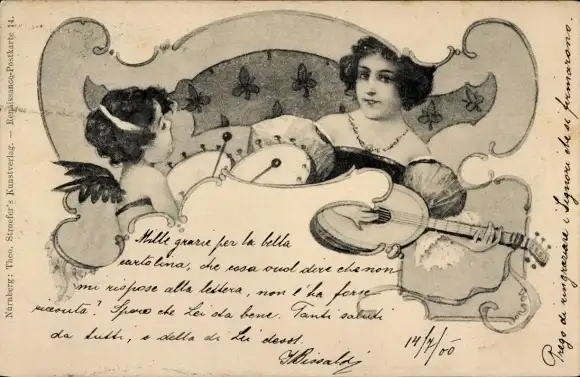 Nürnberg: Theo. Stroefer's Kunstverlag. — Renaissance-Postkarte 14.
Mille grazie per la bella
cartolina, che essa vuol dire che non
mi rispose alla lettera, non l'ha forse
ricevuta? Spero che Lei sta bene. Tanti saluti
da tutti, e della di Lei
14/7/00
Prego di ringraziare i Signori che si firmarono.